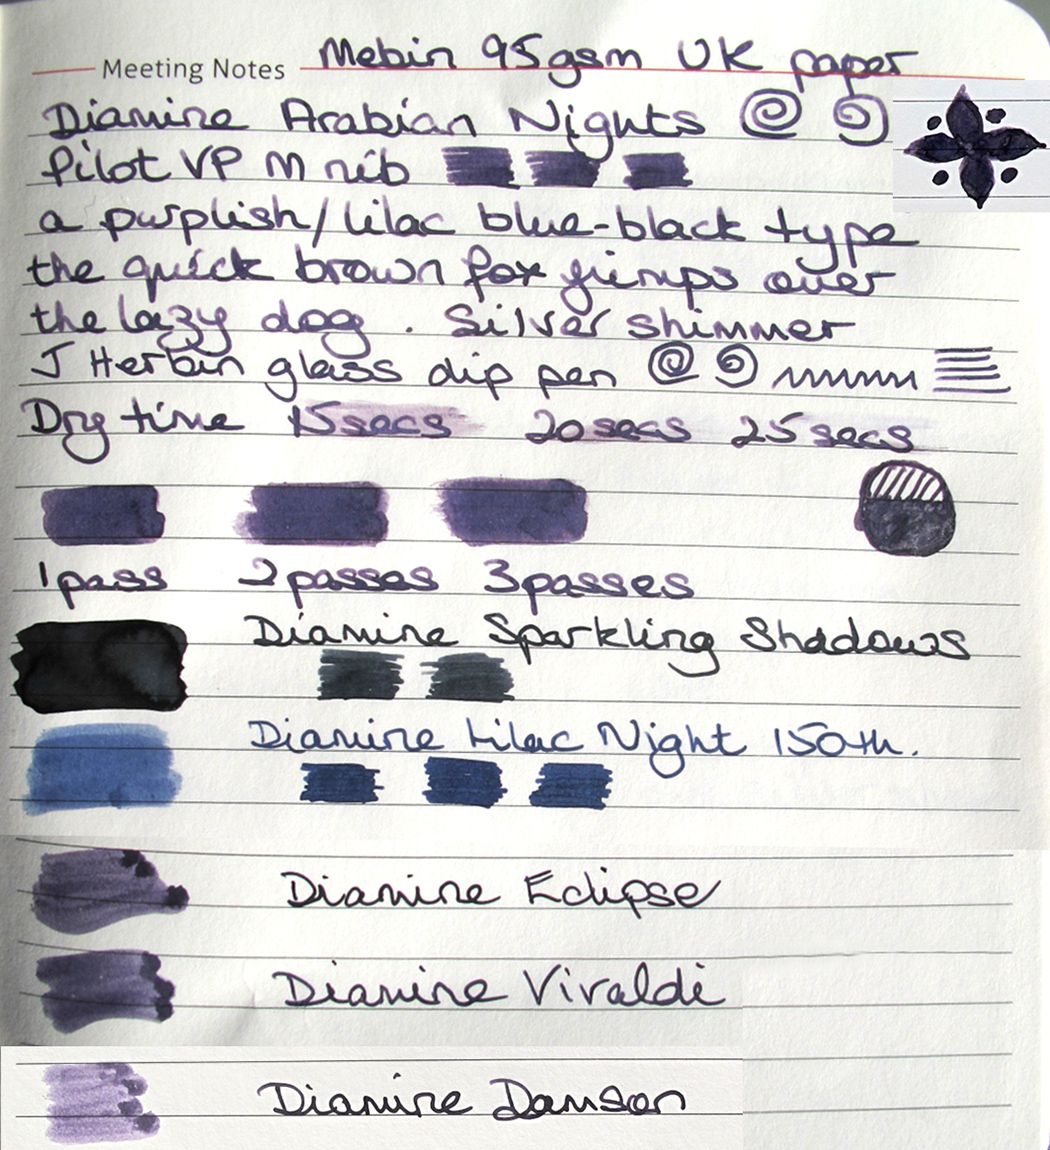 Meeting Notes Mebin 95gsm UK paper
Diamine Arabian Nights
Pilot VP M nib
a purplish/lilac blue-black type
the quick brown fox jumps over
the lazy dog. Silver shimmer
J Herbin glass dip pen
Dry time 15secs 20secs 25secs
1 pass 2 passes 3 passes
Diamine Sparkling Shadows
Diamine Lilac Night 150th.
Diamine Eclipse
Diamine Vivaldi
Diamine Damson